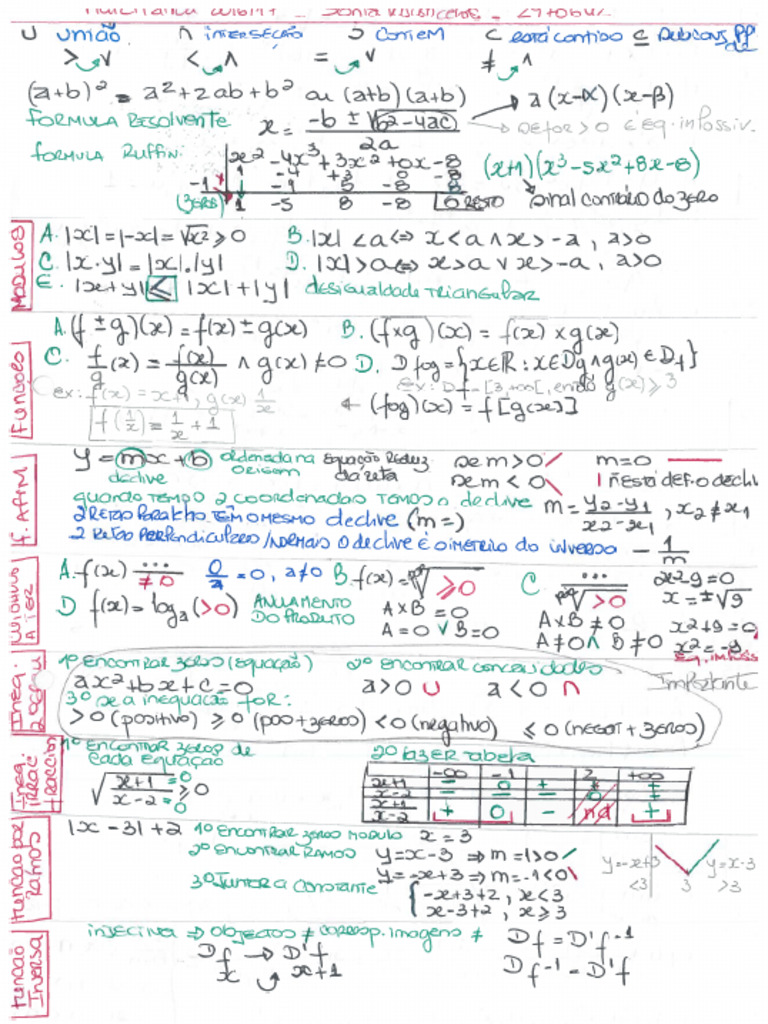 U União ∩ interseção ⊃ contem ⊂ está contido ⊆
> ∨ < ∧ = ∨ ≠ ∧
(a+b)² = a²+2ab+b² ou (a+b)(a+b) → a(x-α)(x-β)
Formula Resolvente x = -b ± √b²-4ac / 2a → se for > 0 é eq. impossiv.
Formula Ruffin: x² - 4x³ + 3x² + 0x - 8 (x+1)(x³-5x²+8x-8)
1 -4 +3 0 -8
-1 -1 5 -8 8
(zero) 1 -5 8 -8 0 Resto sinal contrário do zero
Modulos
A. |x| = |-x| = √x² ≥ 0 B. |x| < a ⇔ x < a ∧ x > -a , a>0
C. |x·y| = |x|.|y| D. |x| > a ⇔ x > a ∨ x > -a , a>0
E. |x+y| ≤ |x|+|y| desigualdade triangular
Funções
A. (f ± g)(x) = f(x) ± g(x) B. (f×g)(x) = f(x) × g(x)
C. f/g (x) = f(x)/g(x) ∧ g(x) ≠ 0 D. Dfog = {x∈R : x∈Dg ∧ g(x) ∈ Df}
ex: f(x) = x+1, g(x) 1/x ex: Df = [3,+∞[, então g(x) ≥ 3
f(1/x) = 1/x + 1 (fog)(x) = f[g(x)]
F. Afim
y = mx + b ordenada na origem Equação Reduz. da reta se m > 0 m = 0
declive se m < 0 ñ está def. o decliv
quando tempo 2 coordenadas temos o declive m = y2-y1 / x2-x1 , x2 ≠ x1
2 retas paralelas têm o mesmo declive (m =)
2 retas perpendiculares/normais o declive é o simetrico do inverso - 1/m
A. f(x) ... / ≠0 0/a = 0, a≠0 B. f(x) = √ ≥0 C. ... / √ >0 x²-9=0
x = ±√9
D f(x) = log a (>0) Anulamento do produto A×B = 0 A×B ≠ 0 x²+9=0
A = 0 ∨ B = 0 A ≠ 0 ∧ B ≠ 0 x² = -9
Eq. imposs
Ineq. 2º grau
1º encontrar zeros (equação) 2º encontrar concavidades
ax²+bx+c = 0 a>0 ∪ a<0 ∩ Importante
3º se a inequação for:
>0 (positivo) ≥0 (pos+zeros) <0 (negativo) ≤0 (negat+zeros)
1º encontrar zeros de cada equação 2º fazer tabela
√ x+1 =0 / x-2 =0 ≥ 0
-∞ -1 2 +∞
x+1 - 0 + + +
x-2 - - - 0 +
x+1/x-2 + 0 - nd +
Função por Ramos
|x-3|+2 1º encontrar zeros modulo x = 3
2º encontrar ramos y = x-3 ⇒ m = 1>0
y = -x+3 ⇒ m = -1<0
y=-x+3 <3 3 y=x-3 >3
3º juntar a constante { -x+3+2, x<3
x-3+2, x≥3
Função Inversa
injectiva ⇒ objectos ≠ corresp. imagens ≠ Df = D'f⁻¹
Df → D'f
x x+1 Df⁻¹ = D'f